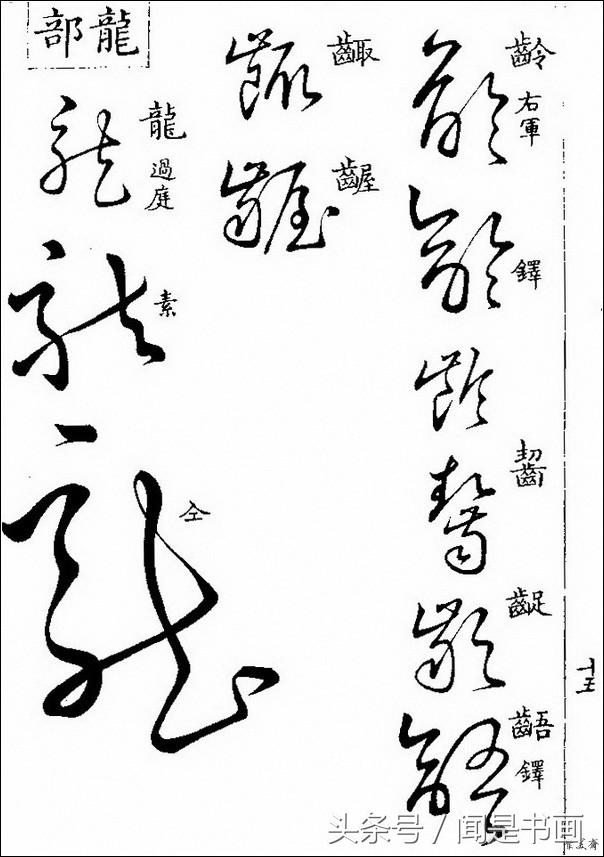 齡 右軍
鐸
齧
齪
齬 鐸
齱
齷
龍部
龍 過庭
素
仝
十五
头条号 / 闻是书画